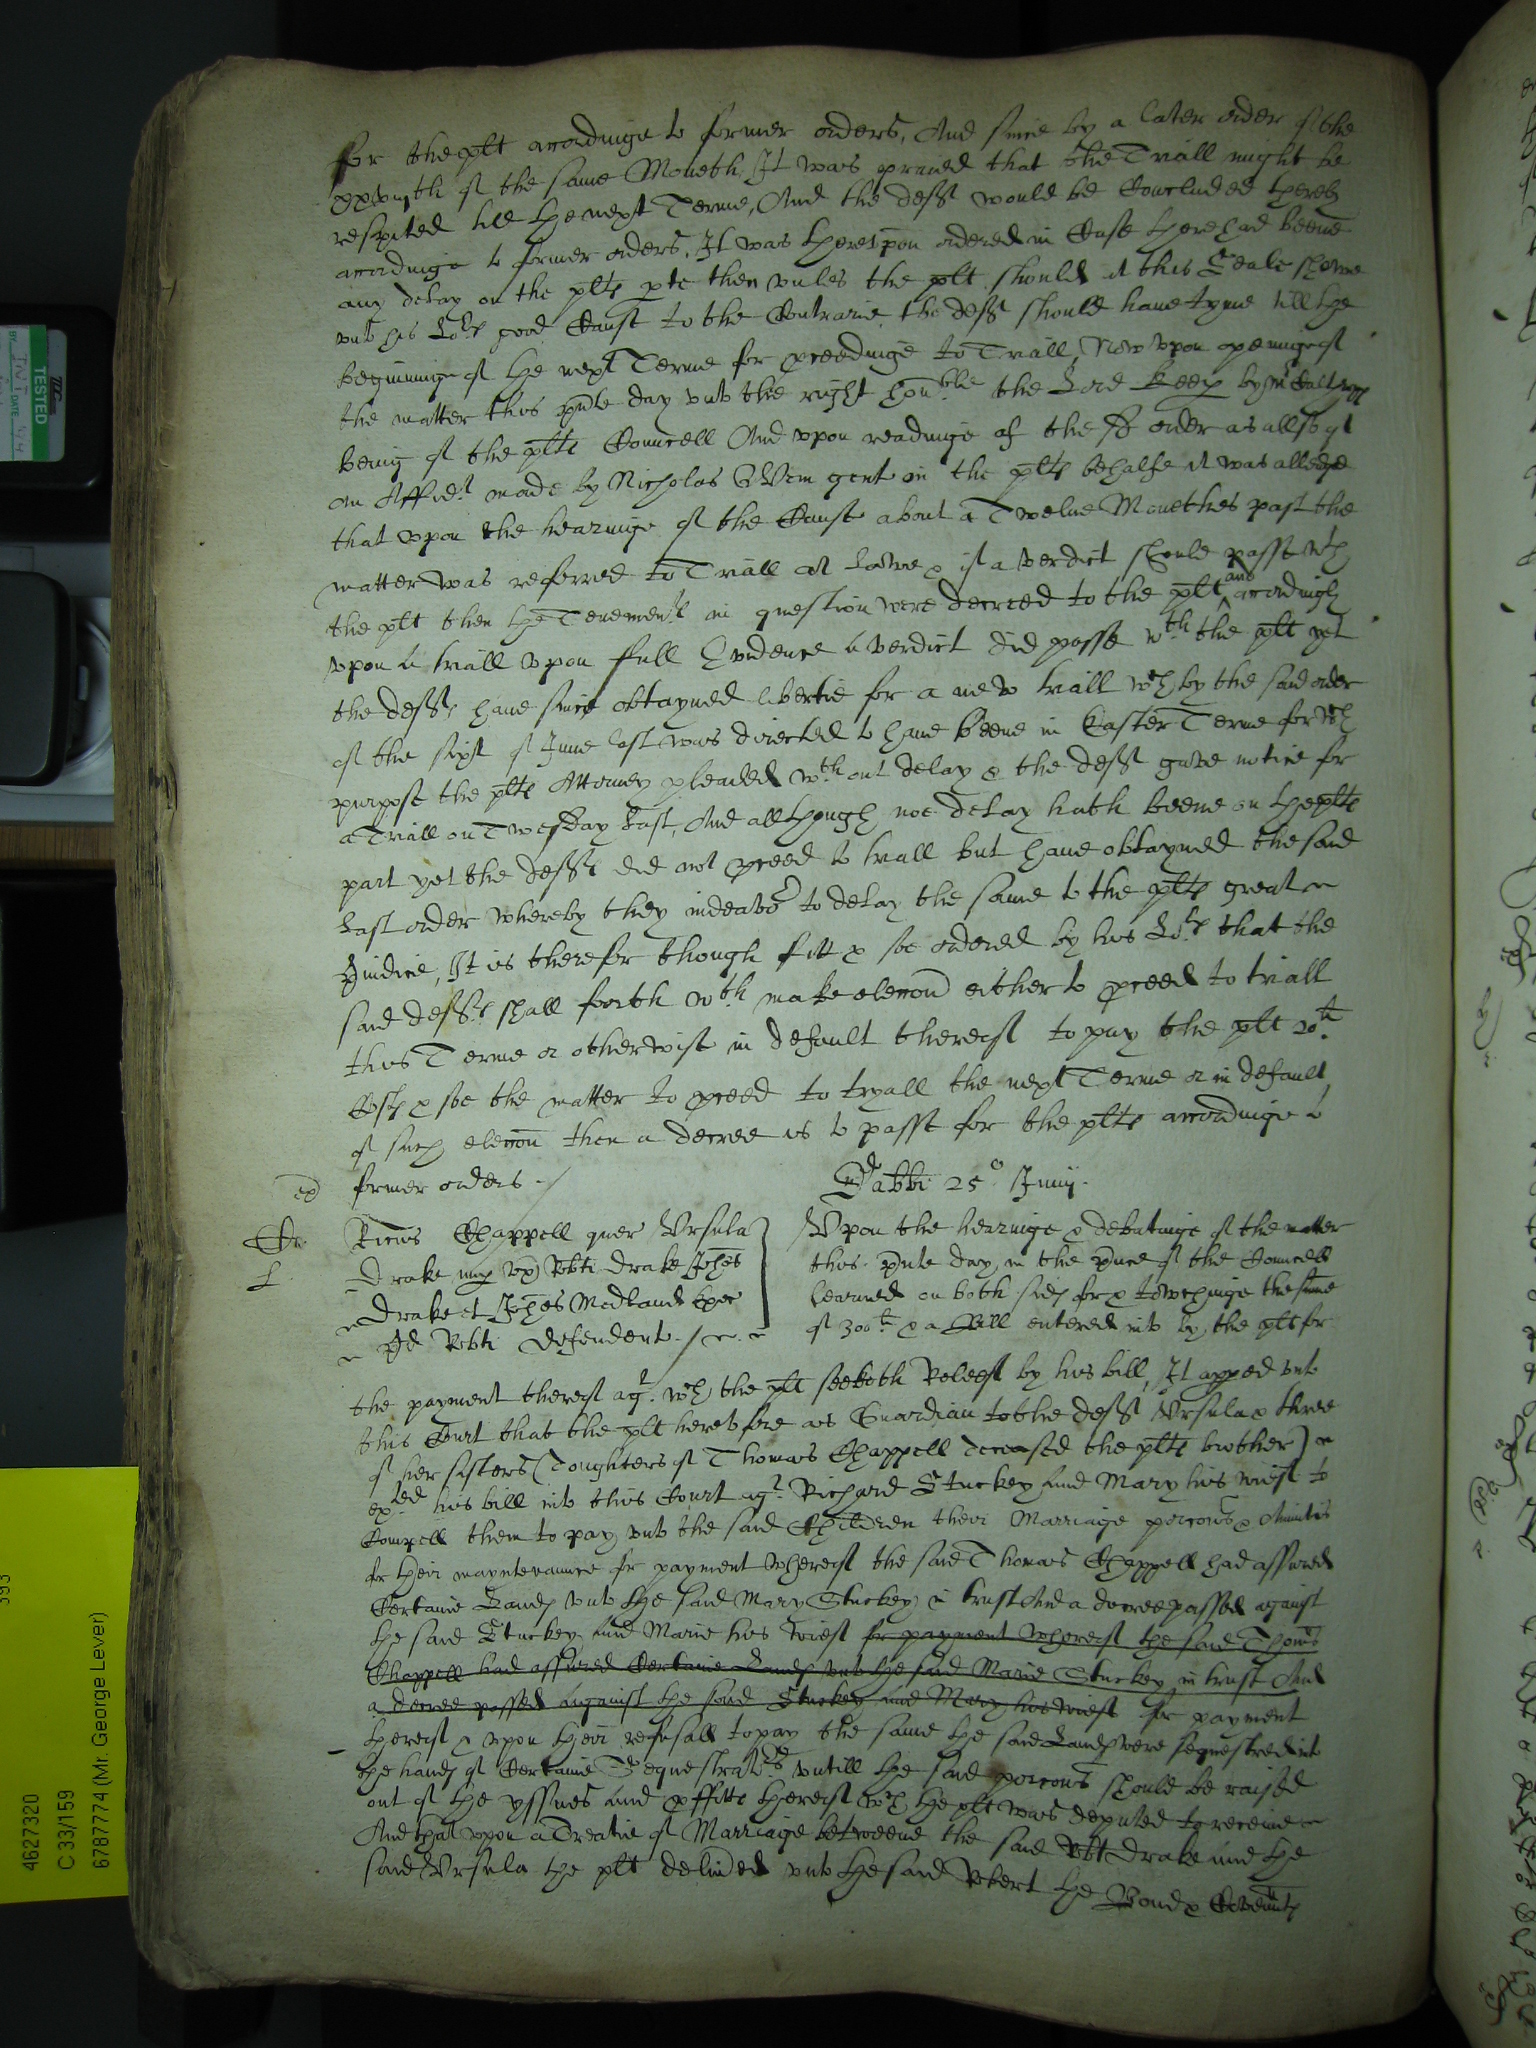 for the plt accordinge to former orders, And since by a later order of the
xxviijth of the same Moneth It was praied that the Triall might be
respited till the next Terme, And the defts would be Concluded thereby
accordinge to former orders, It was therevpon ordered in Case there had beene
any delay on the plts pte then vnles the plt should at this Seale shewe
vnto his Lopp good Cause to the Contrarie the defts should haue tyme till the
beginninge of the next Terme for pceedinge to Triall, Now vpon openinge of
the matter this pnte day vnto the right honble the Lord Keep by Mr
being of the plts Councell And vpon readinge of the sd order as allso of
an Affidt made by Nicholas gent in the plts behalfe it was alledged
that vpon the hearinge of the Cause about a Twelue Monethes past the
matter was referred to Triall at Lawe & if a verdict should passe wth
the plt then the Tenemente in question were decreed to the plt and accordingly
vpon a triall vpon full Evidence a verdict did passe wth the plt yet
the defts haue since obtayned libertie for a new triall wch by the said order
of the sixt of June last was directed to haue beene in Easter Terme for wch
purpose the plts Attorney pleaded wthout delay & the defts gave notice for
a Triall on Twesday Last, And allthough noe delay hath beene on the plts
part yet the defts did not pceed to triall but haue obtayned the said
Last order whereby they indeavor to delay the same to the plts great
piudice, It is therefor though fitt & soe ordered by his Lopp that the
said defts shall foorth wth make eleccon either to pceed to triall
this Terme or otherwise in default thereof to pay the plt 20li
Costs & soe the matter to pceed to tryall the next Terme or in default
of such eleccon then a decree is to passe for the plts accordinge to
former orders
Sabbti 25o Junij
Ricus Chappell quer Vrsula
Drake nup vx Robti Drake Johes
Drake et Johes Medland Exec
pd Robti defendents
Vpon the hearinge & debatinge of the matter
this pnte day in the pnce of the Councell
learned on both sides for & towchinge the some
of 300li & a Bill entered into by the plt for
the payment thereof agt wch the plt seeketh Releef by his bill, It apped vnto
this Court that the plt heretofore as Guardian to the deft Vrsula & three
of her sisters (Doughters of Thomas Chappell deceased the plts brother)
exhited his bill into this Court agt Richard Stuckey and Mary his wief to
Compell them to pay vnto the said Children their Marriage porcons & Anuities
for their mayntenaunce for payment whereof the said Thomas Chappell had assured
Certaine Lands vnto the said Mary Stuckey in trust And a decree passed against
the said Stuckey and Marie his wief for payment whereof the said Thoms
Chappell had assured Certaine Lands vnto the said Marie Stuckey in trust And
a decree passed against the said Stuckey and Mary his wief for payment
thereof & vpon their refusall to pay the same the said Lands were sequestred into
the hands of Certaine Sequestrators vntill the said porcons should be raised
out of the yssues and pffitts thereof wch the plt was deputed to receiue
And that vpon a Treatie of Marriage betweene the said Robt Drake and the
said Vrsula the plt deliued vnto the said Robert the Bond &
TESTED
4627320
C 33/159
6787774 (Mr. George Lever)